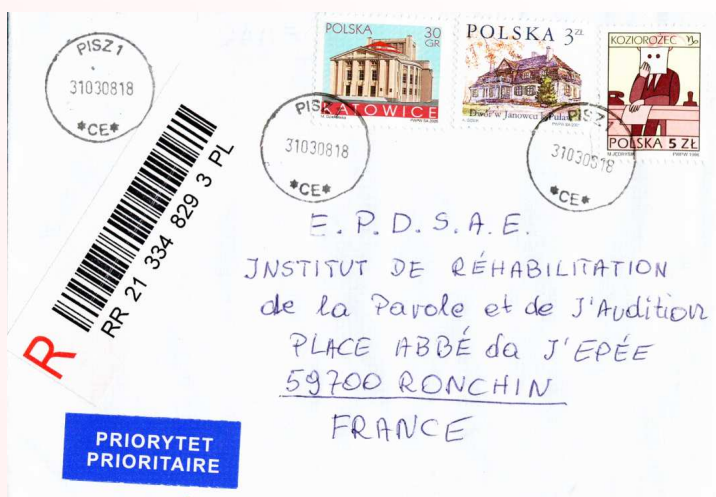 PISZ 1
31030818
*CE*
POLSKA 30 GR
KATOWICE
POLSKA 3 ZŁ
Dwór w Janowcu k. Puław
KOZIOROŻEC
POLSKA 5 ZŁ
PISZ 1
31030818
*CE*
PISZ 1
31030818
*CE*
RR 21 334 829 3 PL
R
E. P. D. S. A. E.
INSTITUT DE RÉHABILITATION
de la Parole et de J'Audition
PLACE ABBÉ da J'EPÉE
59700 RONCHIN
FRANCE
PRIORYTET
PRIORITAIRE